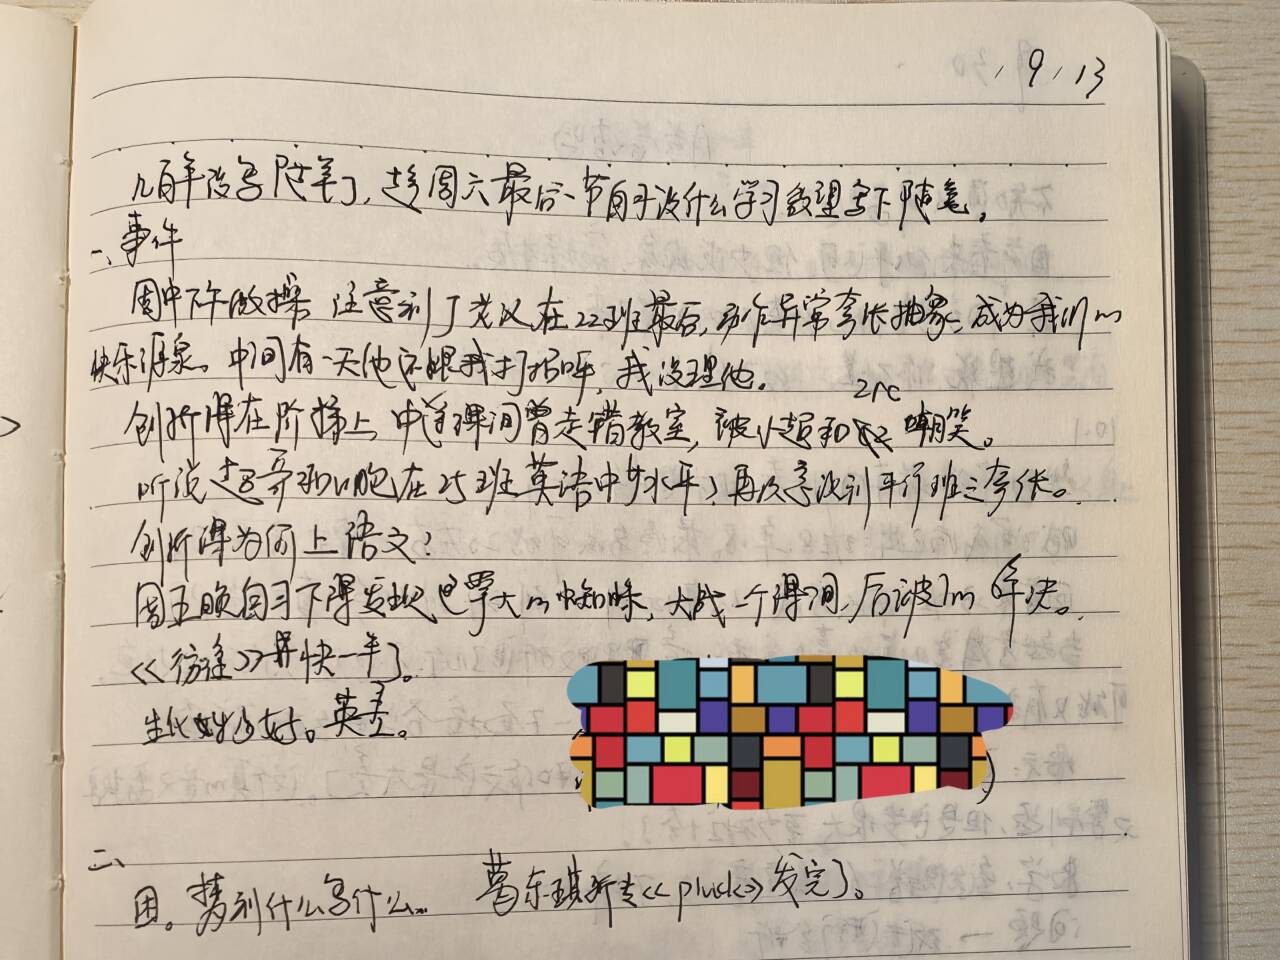 9.13
几百年没写随笔了,趁周六最后一节自习没什么学习欲望写下随笔。
一、事件
周中下午做操注意到丁老汉在22班最后,动作异常夸张抽象,成为我们m
快乐源泉。中间有一天他还跟我打招呼,我没理他。
创新课在阶梯上,中途课间曾走错教室,被小超和zrc嘲笑。
听说超哥和心胞在25班英语中等水平,再次意识到平行班之夸张。
创新课为何上语文?
周五晚自习下课发现巴掌大m蜘蛛,大战一个课间,后被lm解决。
《彷徨》弄快一半了。
生化好好。英差。
二、
困。想到什么写什么... 葛东琪新专《pluck》发完了。